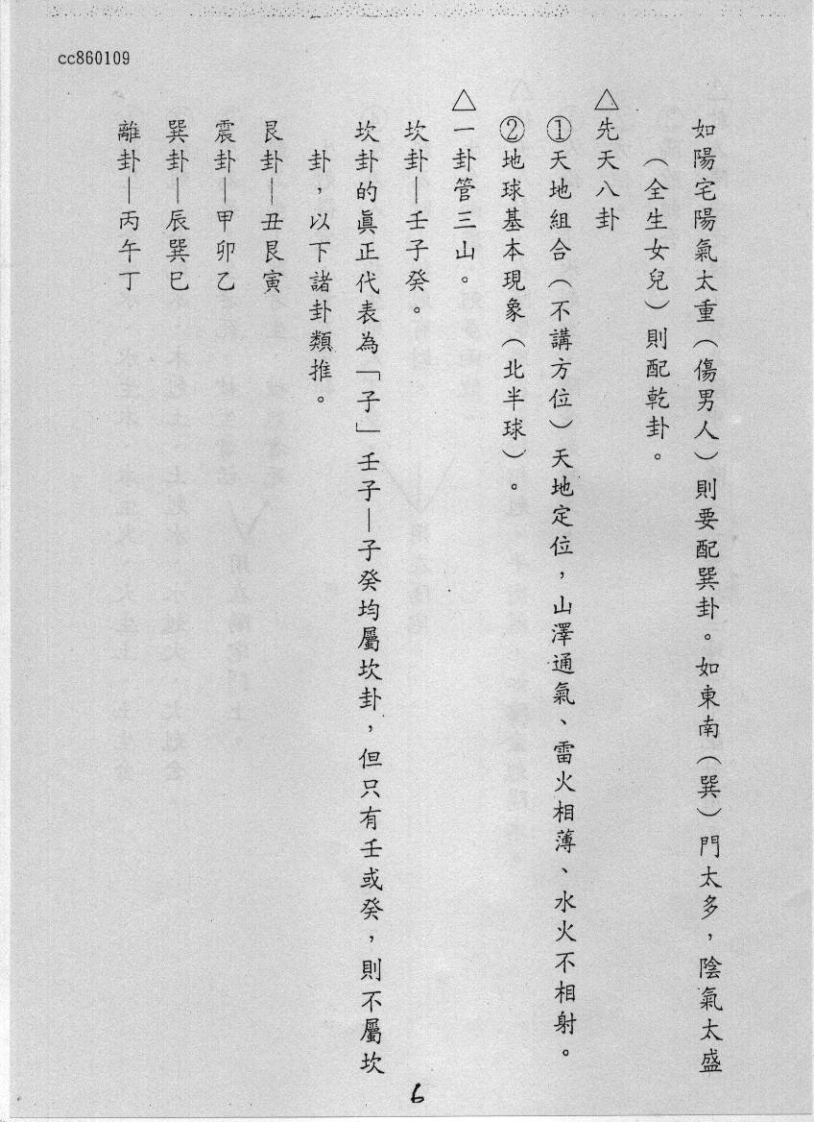 cc860109
如陽宅陽氣太重（傷男人）則要配巽卦。如東南（巽）門太多，陰氣太盛
（全生女兒）則配乾卦。
△先天八卦
①天地組合（不講方位）天地定位，山澤通氣、雷火相薄、水火不相射。
②地球基本現象（北半球）。
△一卦管三山。
坎卦—壬子癸。
坎卦的眞正代表為「子」壬子—子癸均屬坎卦，但只有壬或癸，則不屬坎
卦，以下諸卦類推。
艮卦—丑艮寅
震卦—甲卯乙
巽卦—辰巽巳
離卦—丙午丁
6